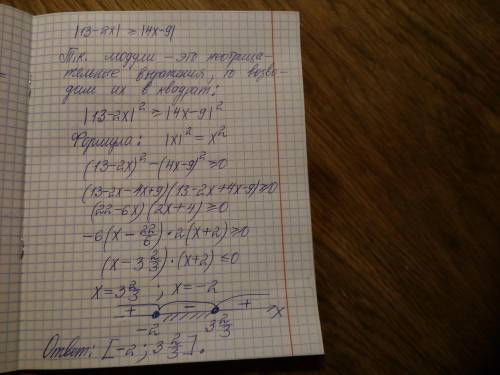 |13-2x| ≥ |4x-9|
Т.к. модули - это неотрица-
тельные выражения, то возво-
дим их в квадрат:
|13-2x|² ≥ |4x-9|²
Формула: |x|² = x²
(13-2x)² - (4x-9)² ≥ 0
(13-2x-4x+9)(13-2x+4x-9) ≥ 0
(22-6x)(2x+4) ≥ 0
-6(x - 22/6) · 2(x+2) ≥ 0
(x - 3 2/3) · (x+2) ≤ 0
x = 3 2/3 ; x = -2
+ - + x
-2 3 2/3
Ответ: [-2; 3 2/3].